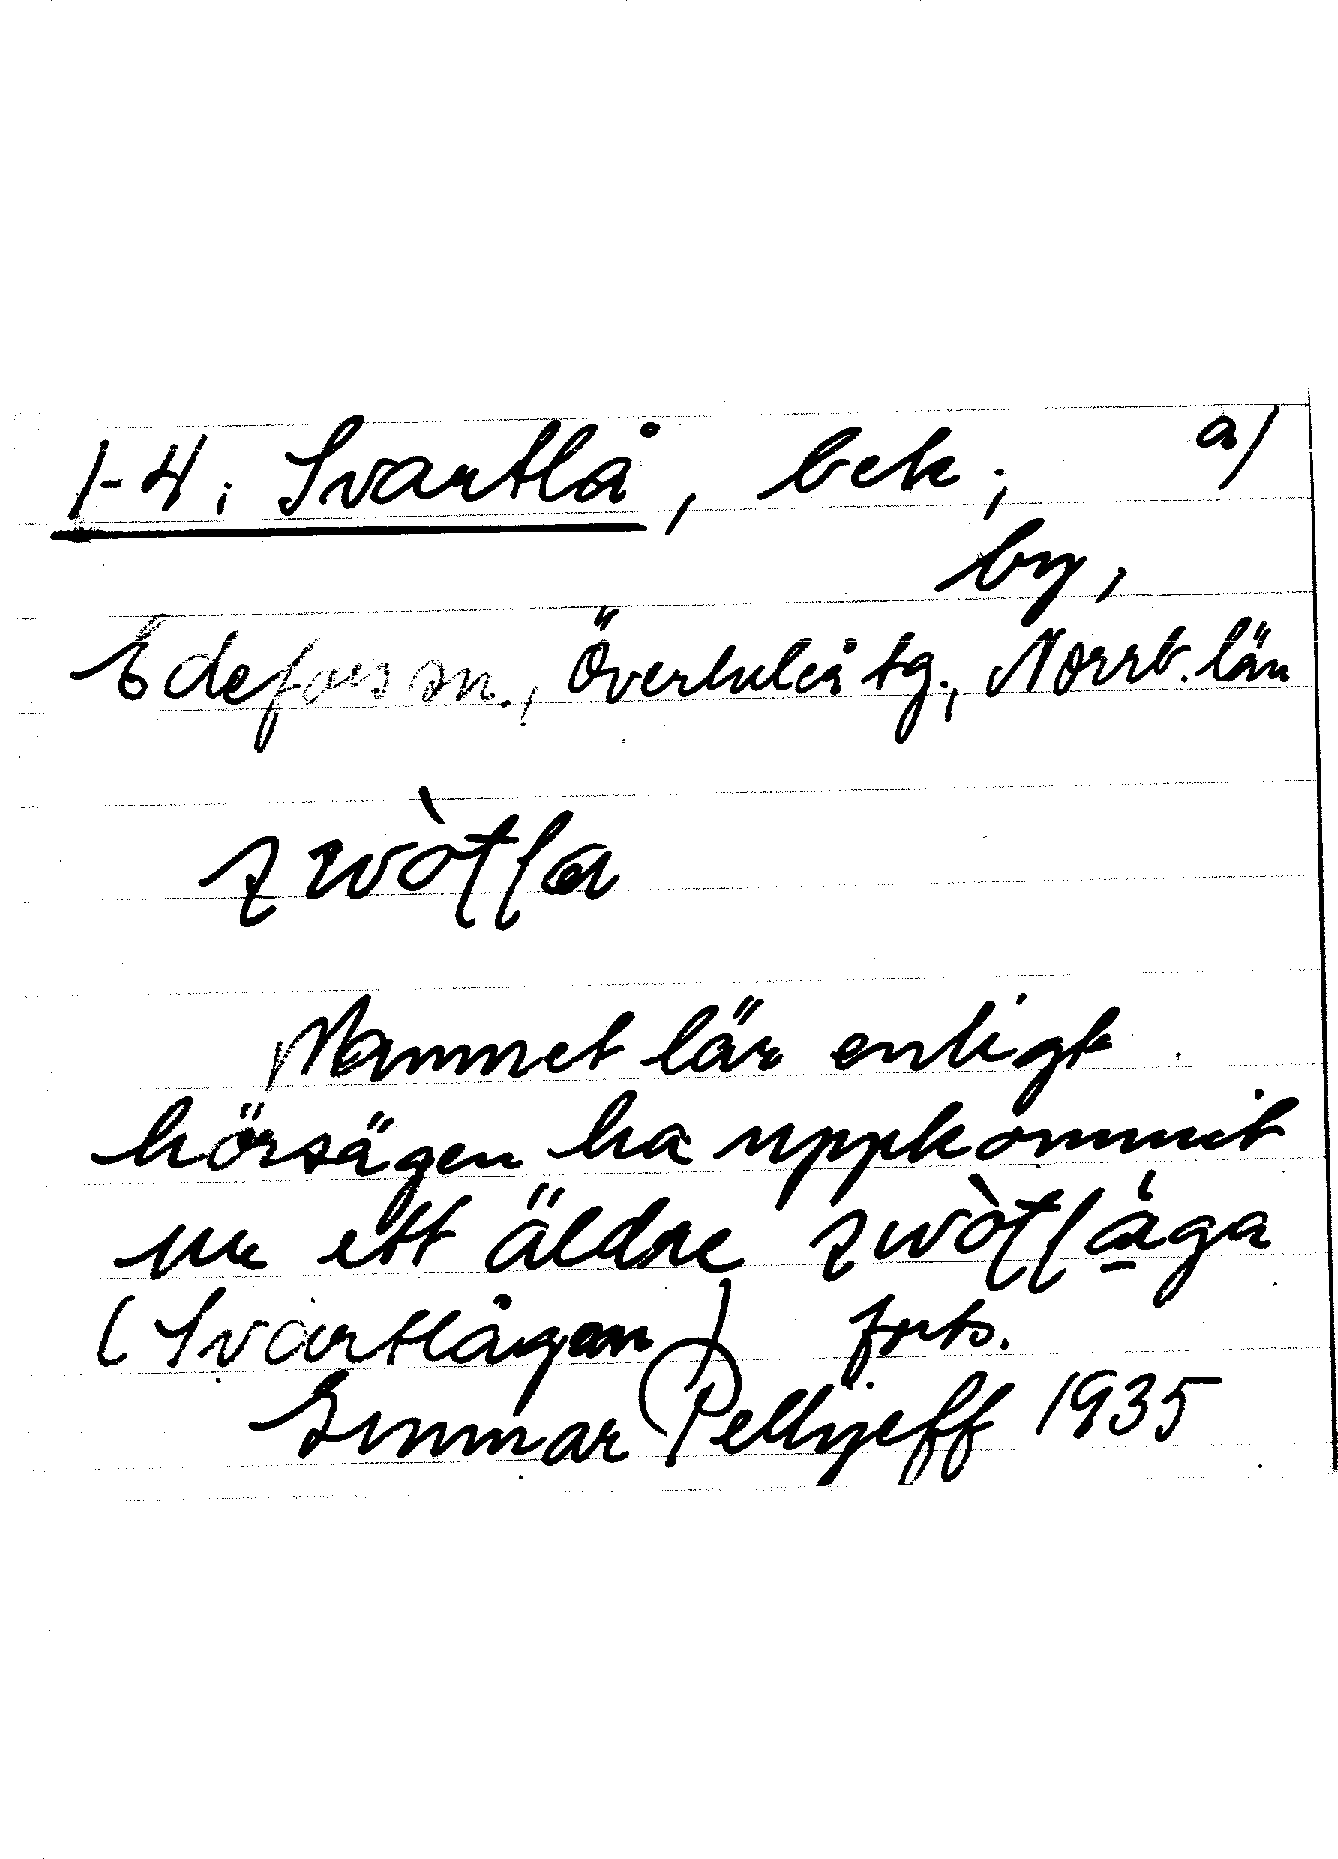 1-4. Svartlå, bek; a)
by,
Edefors sn., Överluleå tg., Norrb. län
zwòtla
Namnet lär enligt
hörsägen ha uppkommit
ur ett äldre zwòtlåga
(Svartlågan) forts.
Gunnar Pellijeff 1935